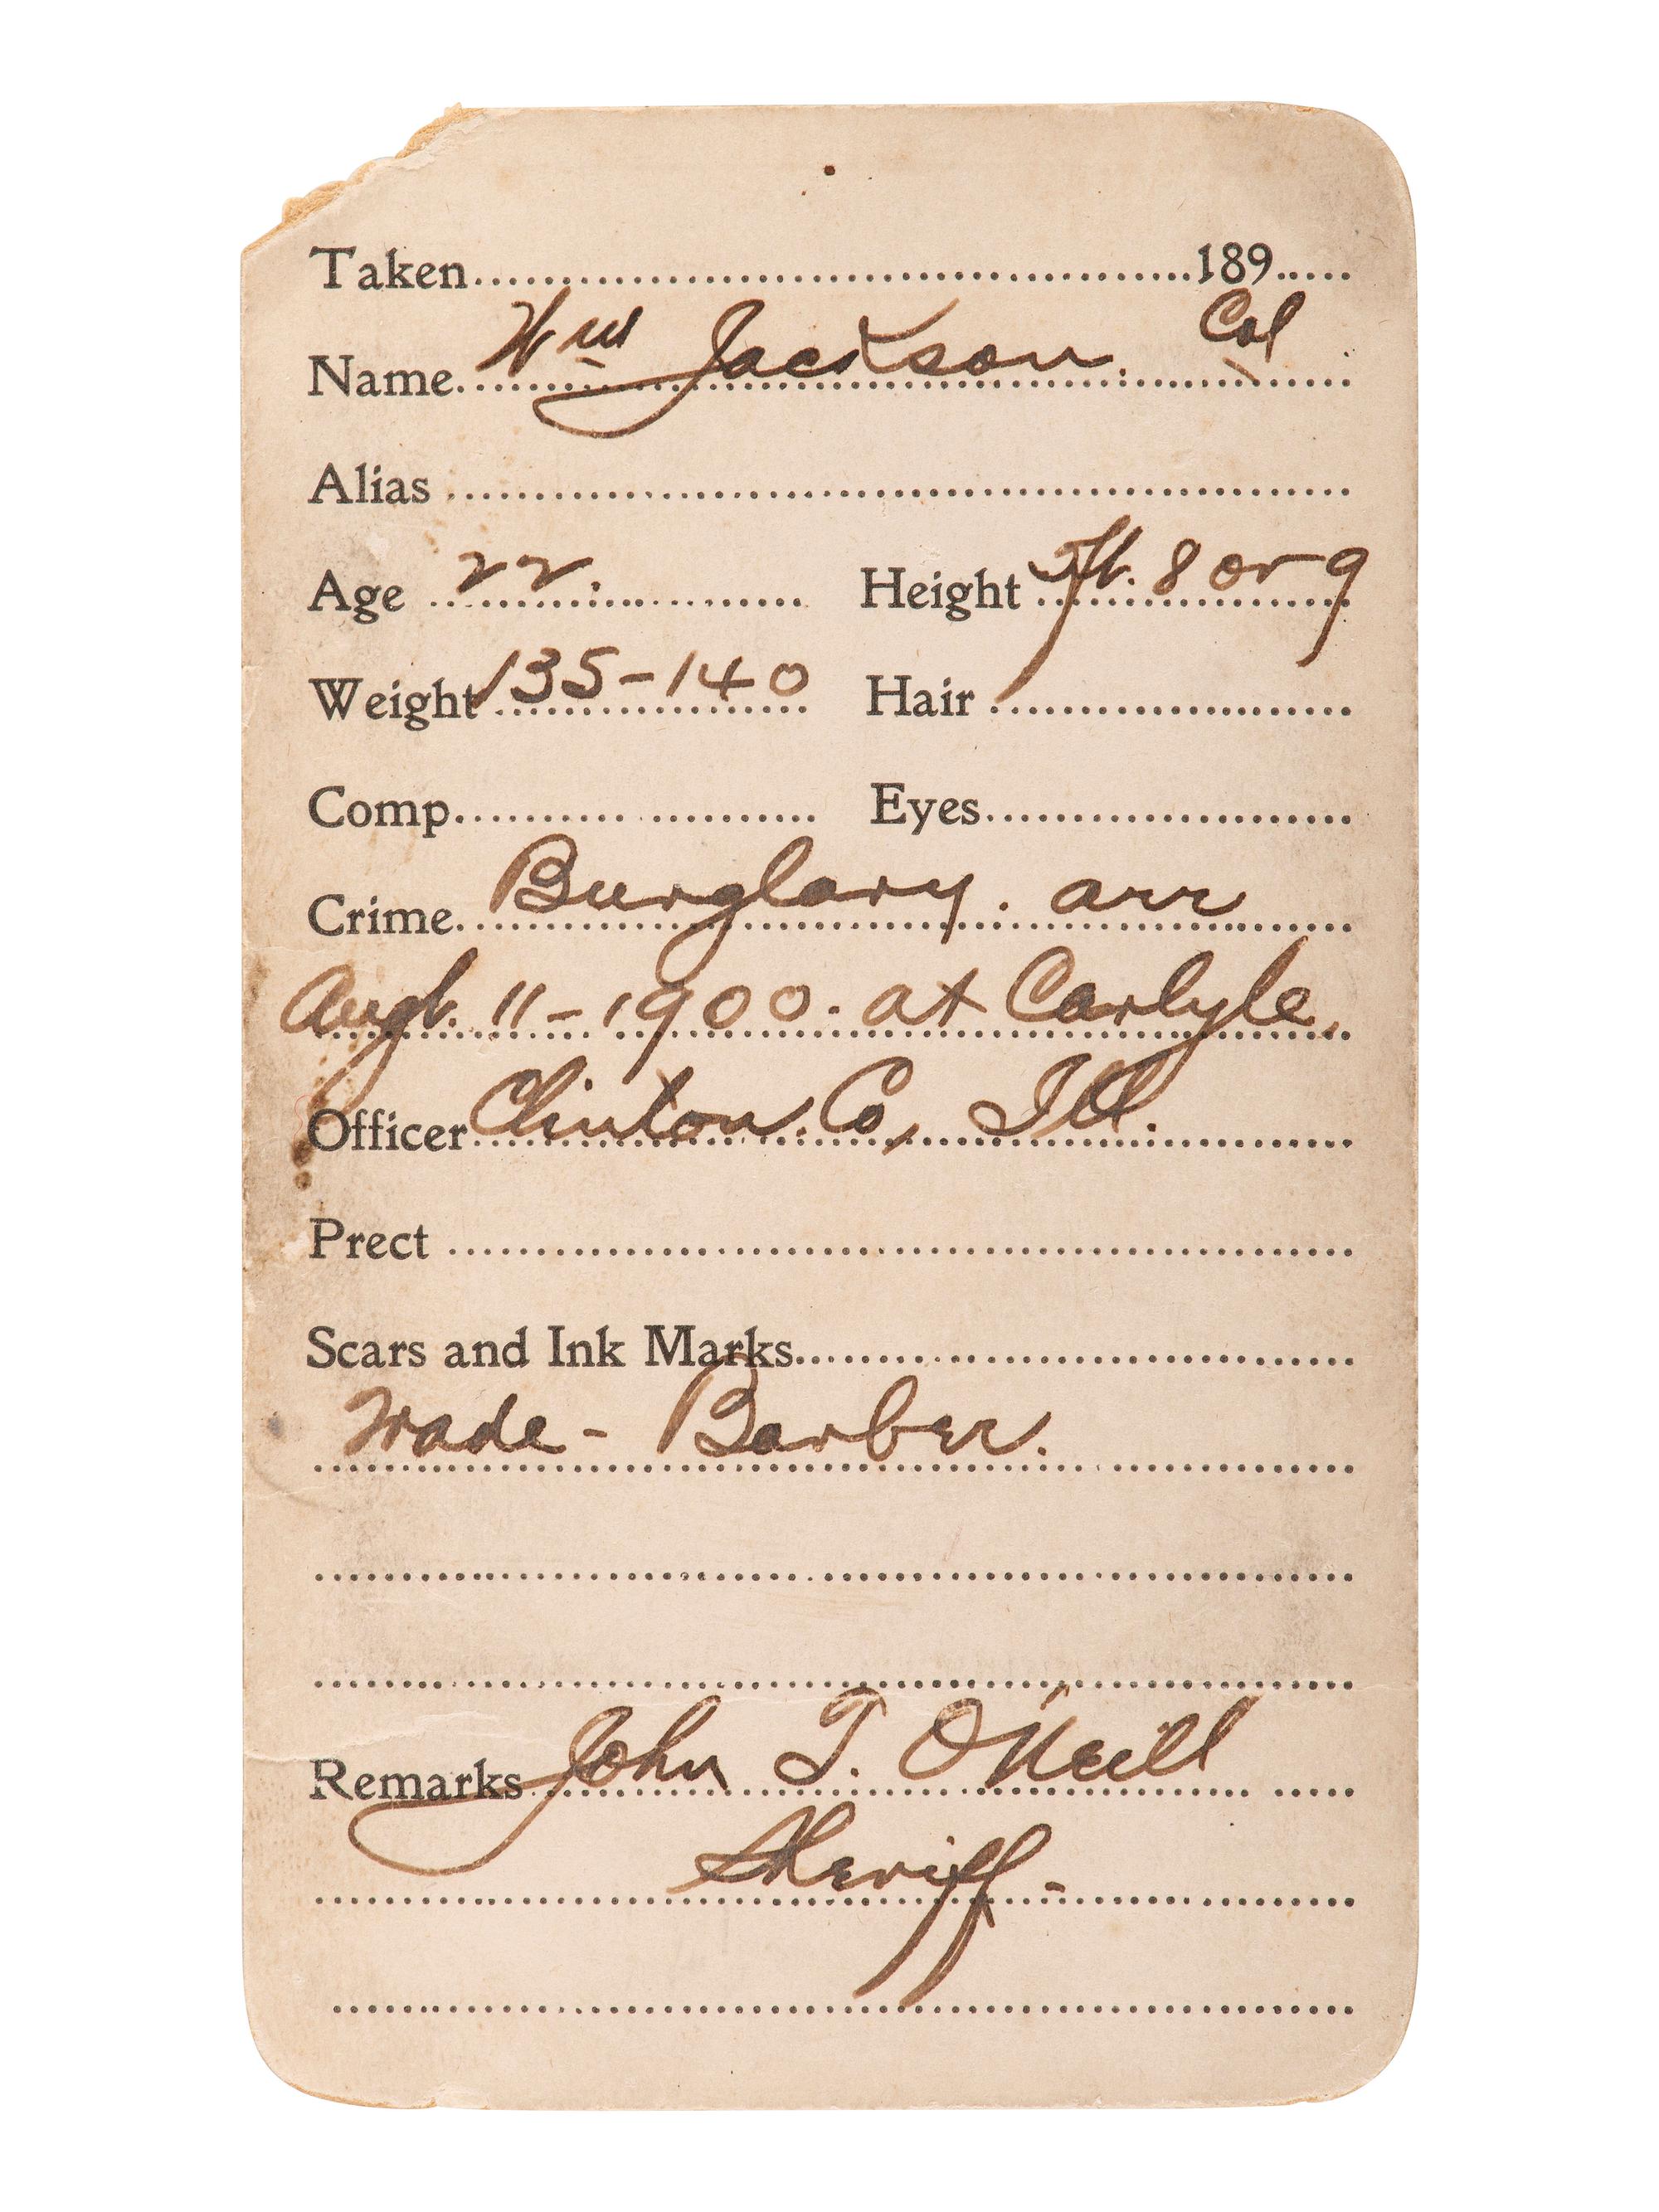 Taken 189
Name Wm Jackson. Col
Alias
Age 22. Height 5ft. 8 or 9
Weight 135-140 Hair
Comp Eyes
Crime Burglary. arr
Augt. 11-1900. at Carlyle.
Officer Clinton. Co, Ill.
Prect
Scars and Ink Marks
Trade - Barber.
Remarks John T. O'Neill
Sheriff-